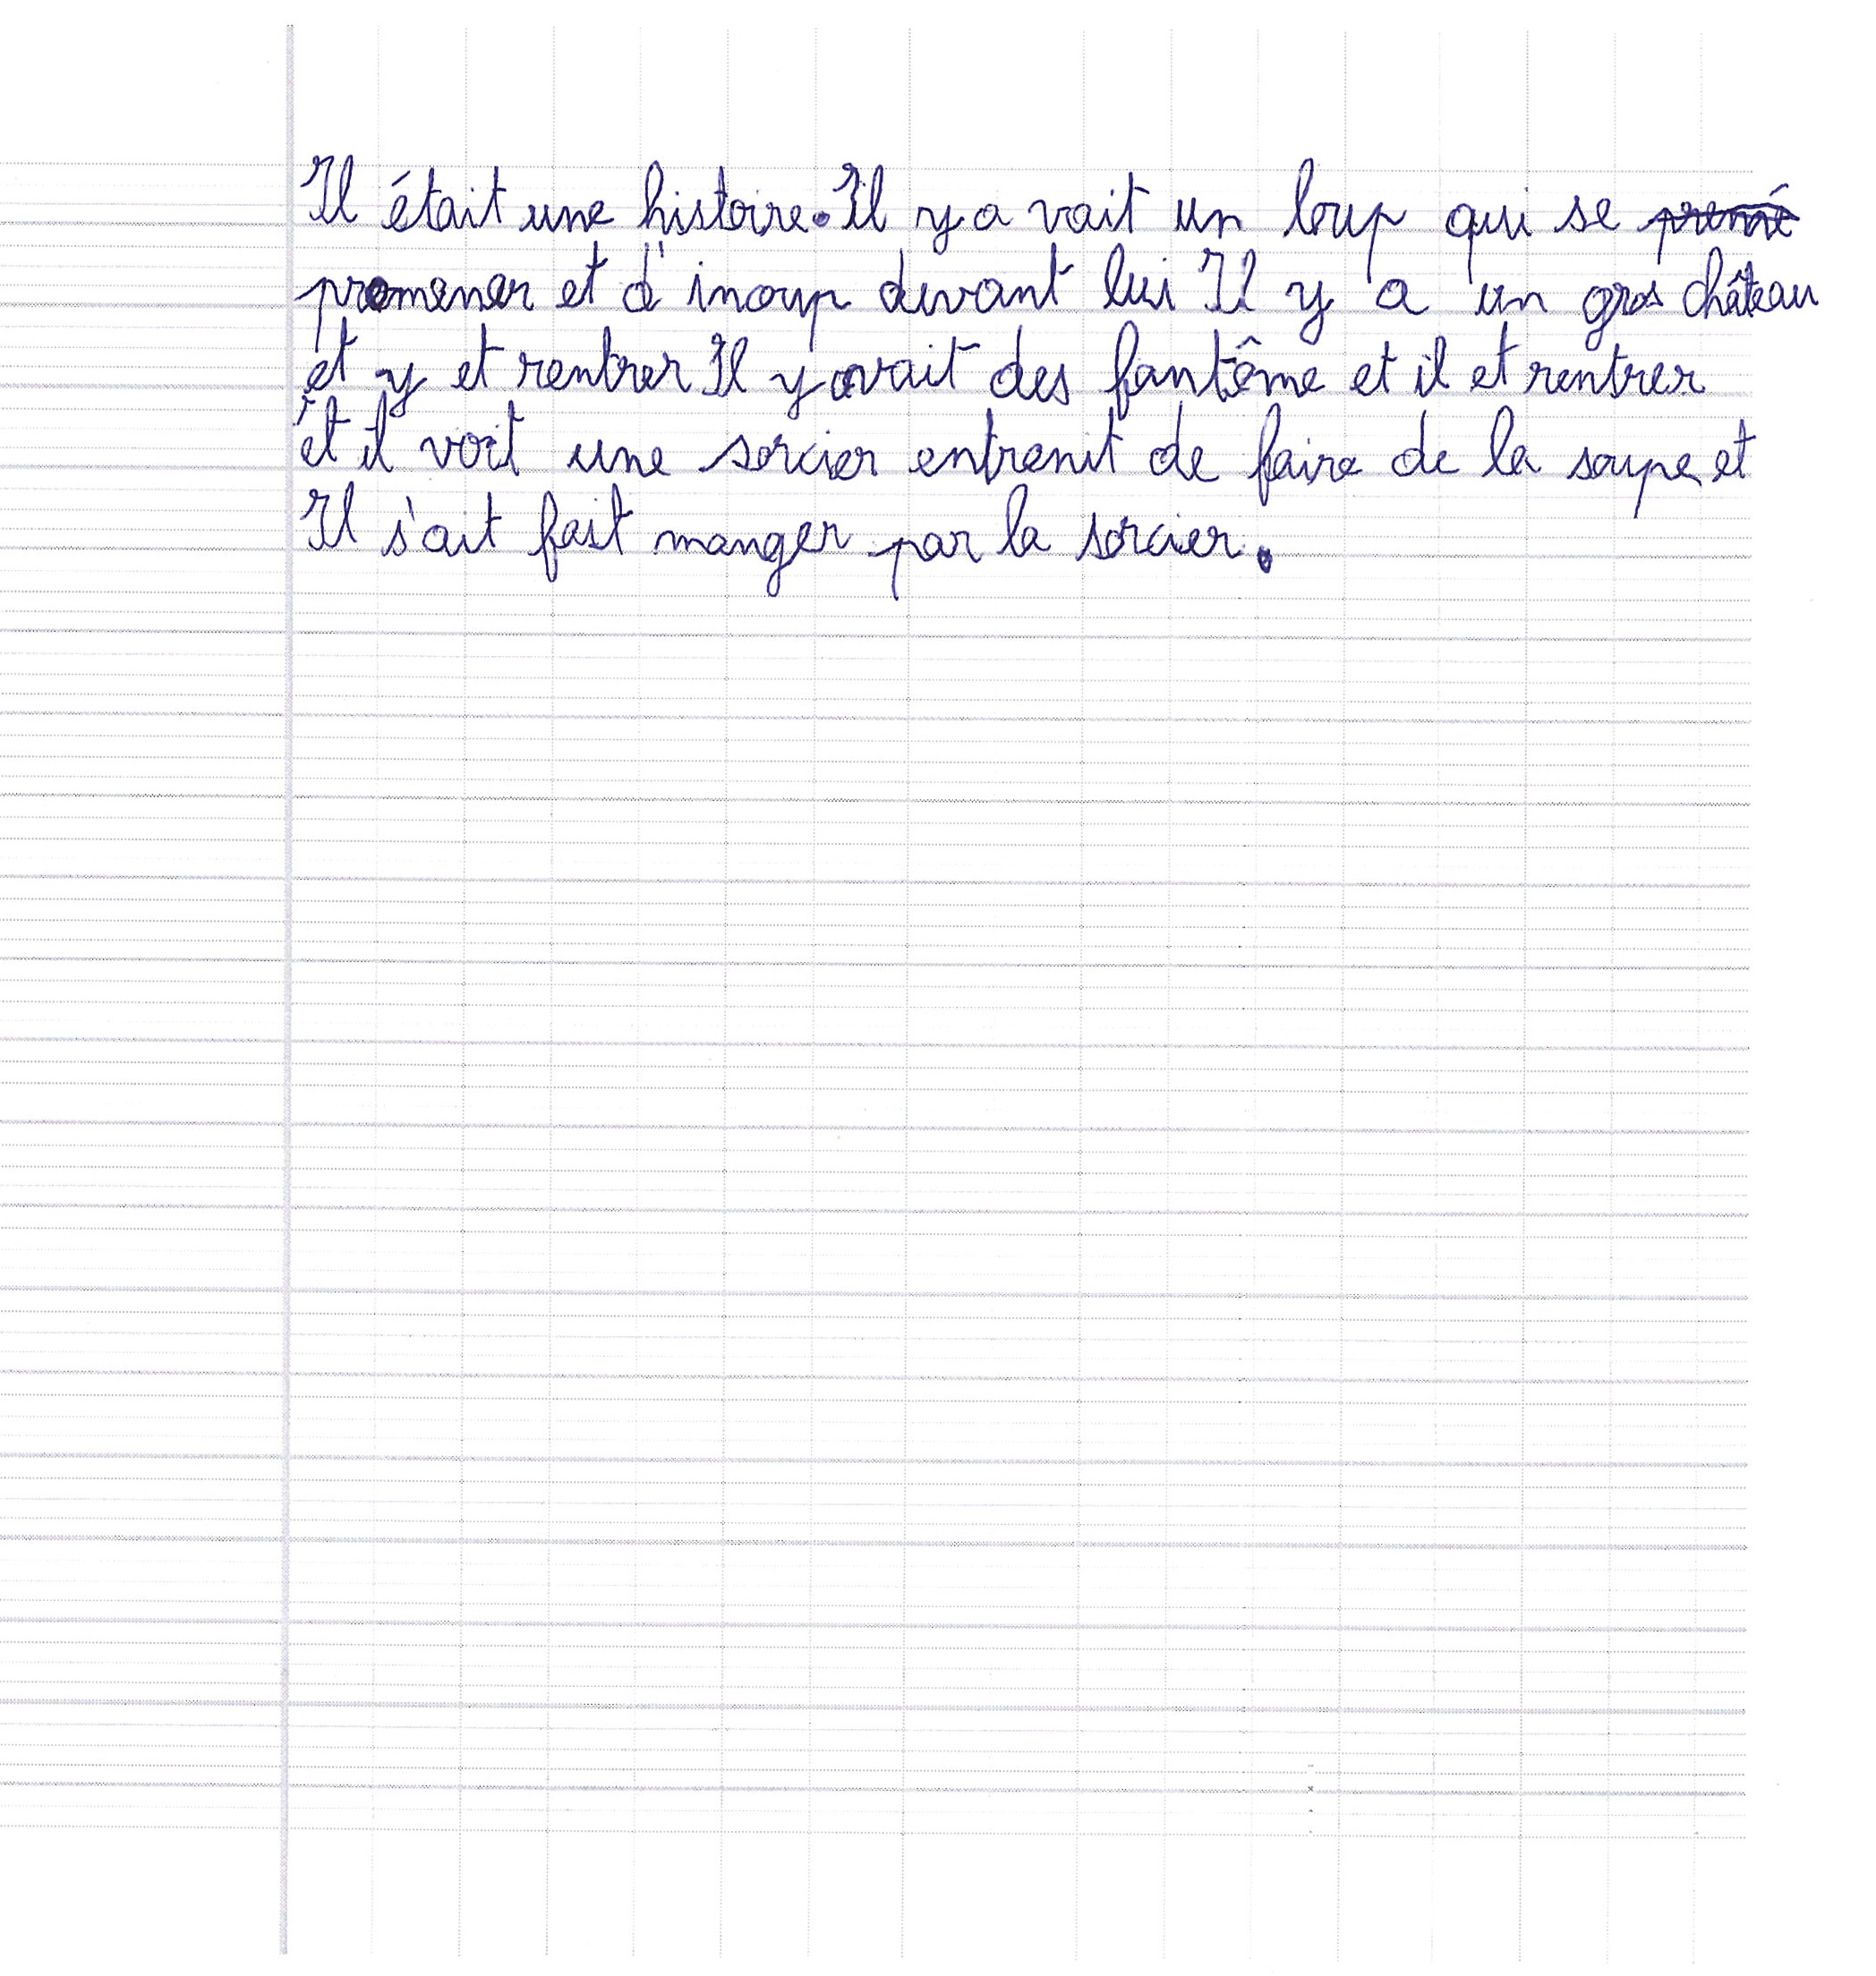 Il était une histoire. Il y a vait un loup qui se promé
promener et d'inoup devant lui Il y a un gros château
et y et rentrer Il y avait des fantôme et il et rentrer
et il voit une sorcier entrenit de faire de la soupe et
Il s'ait fait manger par la sorcier.